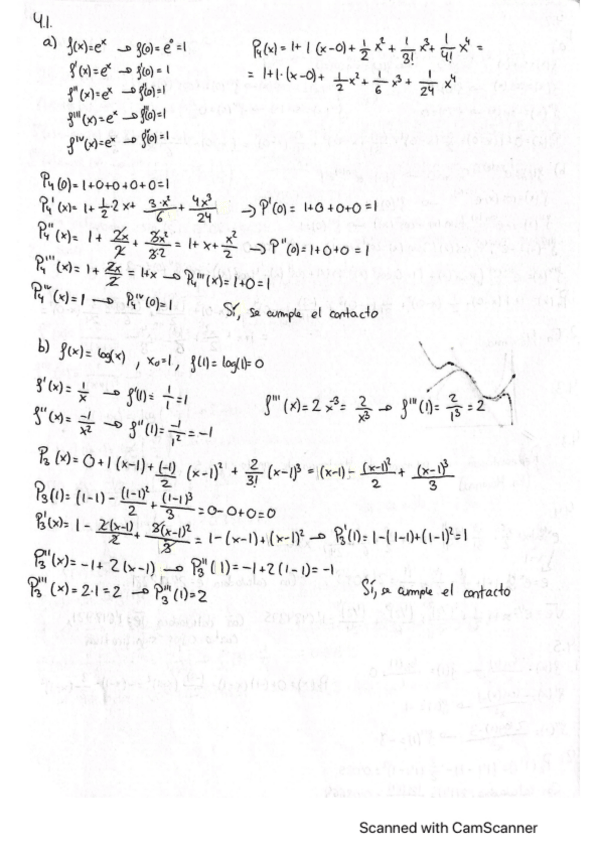 4.1.
a) f(x)=e^x → f(0)=e^0=1
f'(x)=e^x → f'(0)=1
f''(x)=e^x → f''(0)=1
f'''(x)=e^x → f'''(0)=1
f^iv(x)=e^x → f^iv(0)=1
P4(x)=1+1(x-0)+1/2 x^2+1/3! x^3+1/4! x^4=
=1+1·(x-0)+1/2 x^2+1/6 x^3+1/24 x^4
P4(0)=1+0+0+0+0=1
P4'(x)=1+1/2·2x+3·x^2/6+4x^3/24 → P'(0)=1+0+0+0=1
P4''(x)=1+2x/2+3x^2/3·2=1+x+x^2/2 → P''(0)=1+0+0=1
P4'''(x)=1+2x/2=1+x → P4'''(x)=1+0=1
P4^iv(x)=1 → P4^iv(0)=1
Sí, se cumple el contacto
b) f(x)=log(x), x0=1, f(1)=log(1)=0
f'(x)=1/x → f'(1)=1/1=1
f''(x)=-1/x^2 → f''(1)=-1/1^2=-1
f'''(x)=2x^-3=2/x^3 → f'''(1)=2/1^3=2
P3(x)=0+1(x-1)+(-1)/2 (x-1)^2+2/3! (x-1)^3=(x-1)-(x-1)^2/2+(x-1)^3/3
P3(1)=(1-1)-(1-1)^2/2+(1-1)^3/3=0-0+0=0
P3'(x)=1-2(x-1)/2+3(x-1)^2/3=1-(x-1)+(x-1)^2 → P3'(1)=1-(1-1)+(1-1)^2=1
P3''(x)=-1+2(x-1) → P3''(1)=-1+2(1-1)=-1
P3'''(x)=2·1=2 → P3'''(1)=2
Sí, se cumple el contacto
Scanned with CamScanner